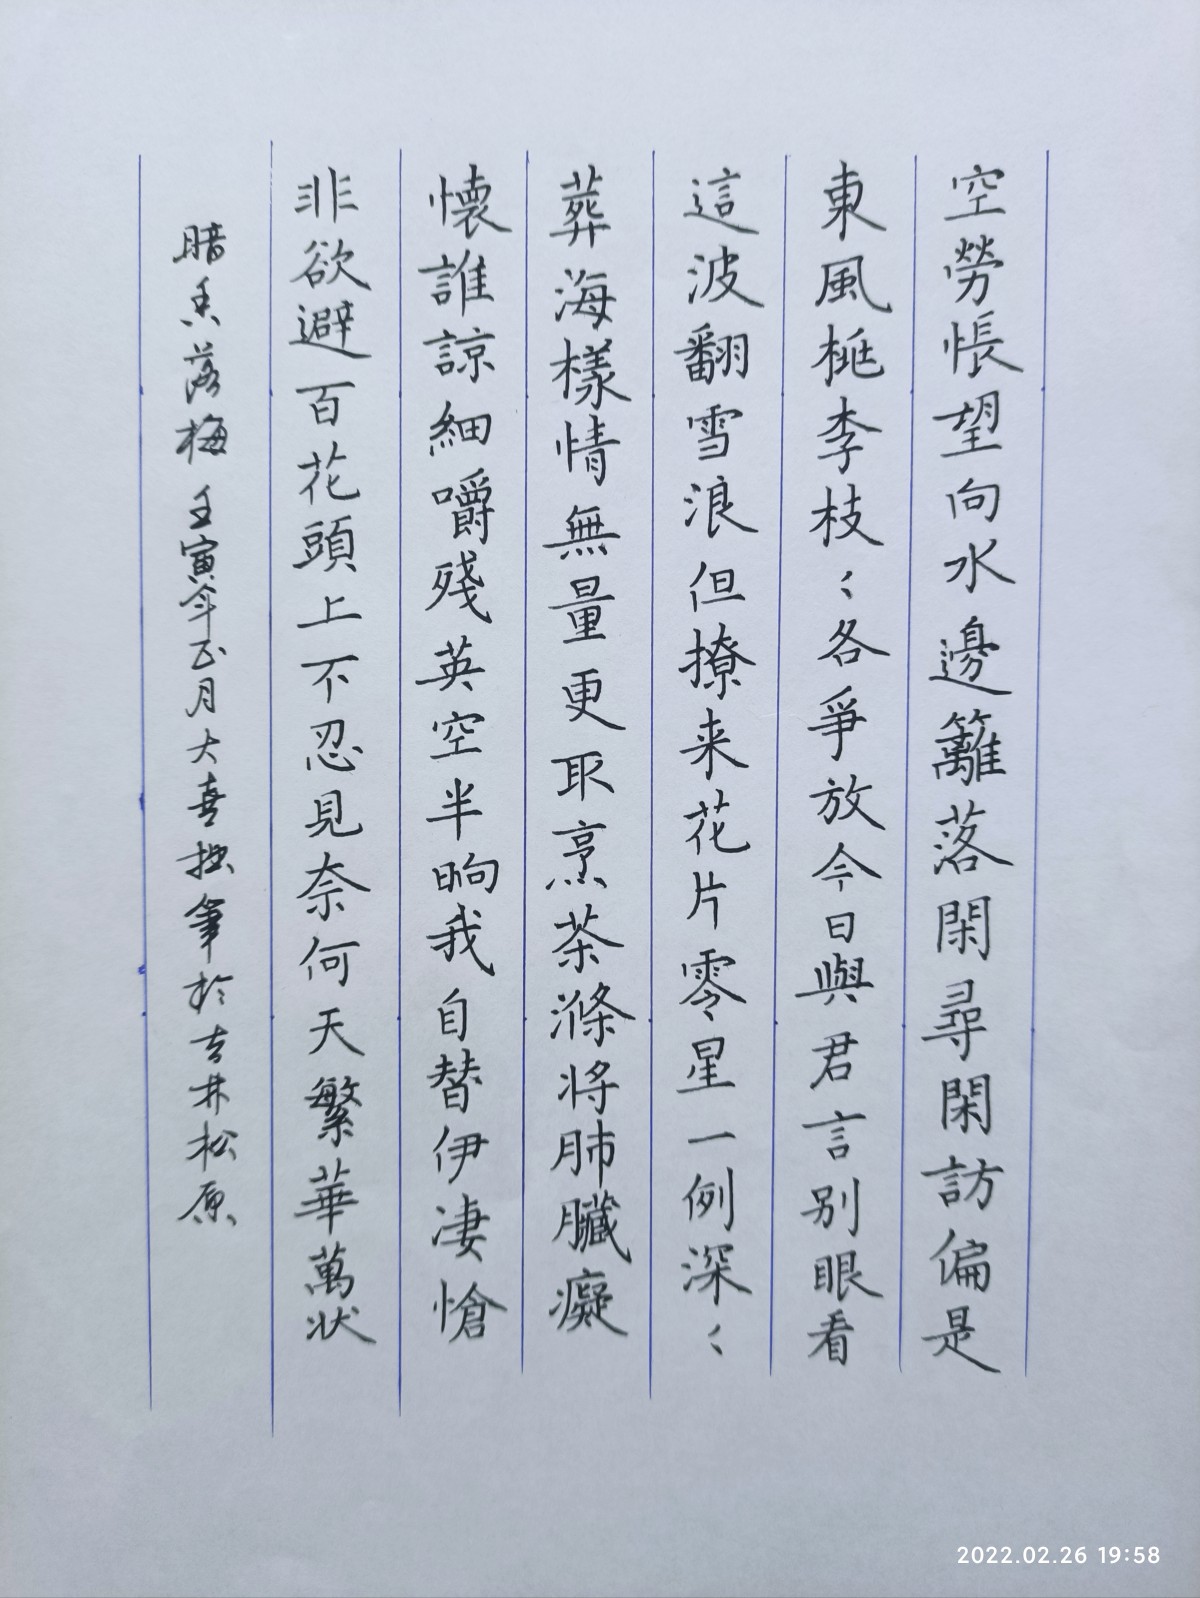 空勞悵望向水邊籬落閑尋閑訪偏是
東風桃李枝〻各爭放今日與君言别眼看
這波翻雪浪但撩来花片零星一例深〻
葬海樣情無量更取烹茶滌将肺臟癡
懐誰諒細嚼殘英空半晌我自替伊凄愴
非欲避百花頭上不忍見奈何天繁華萬状
暗香落梅壬寅年正月大喜拙筆於古井松原
2022.02.26 19:58